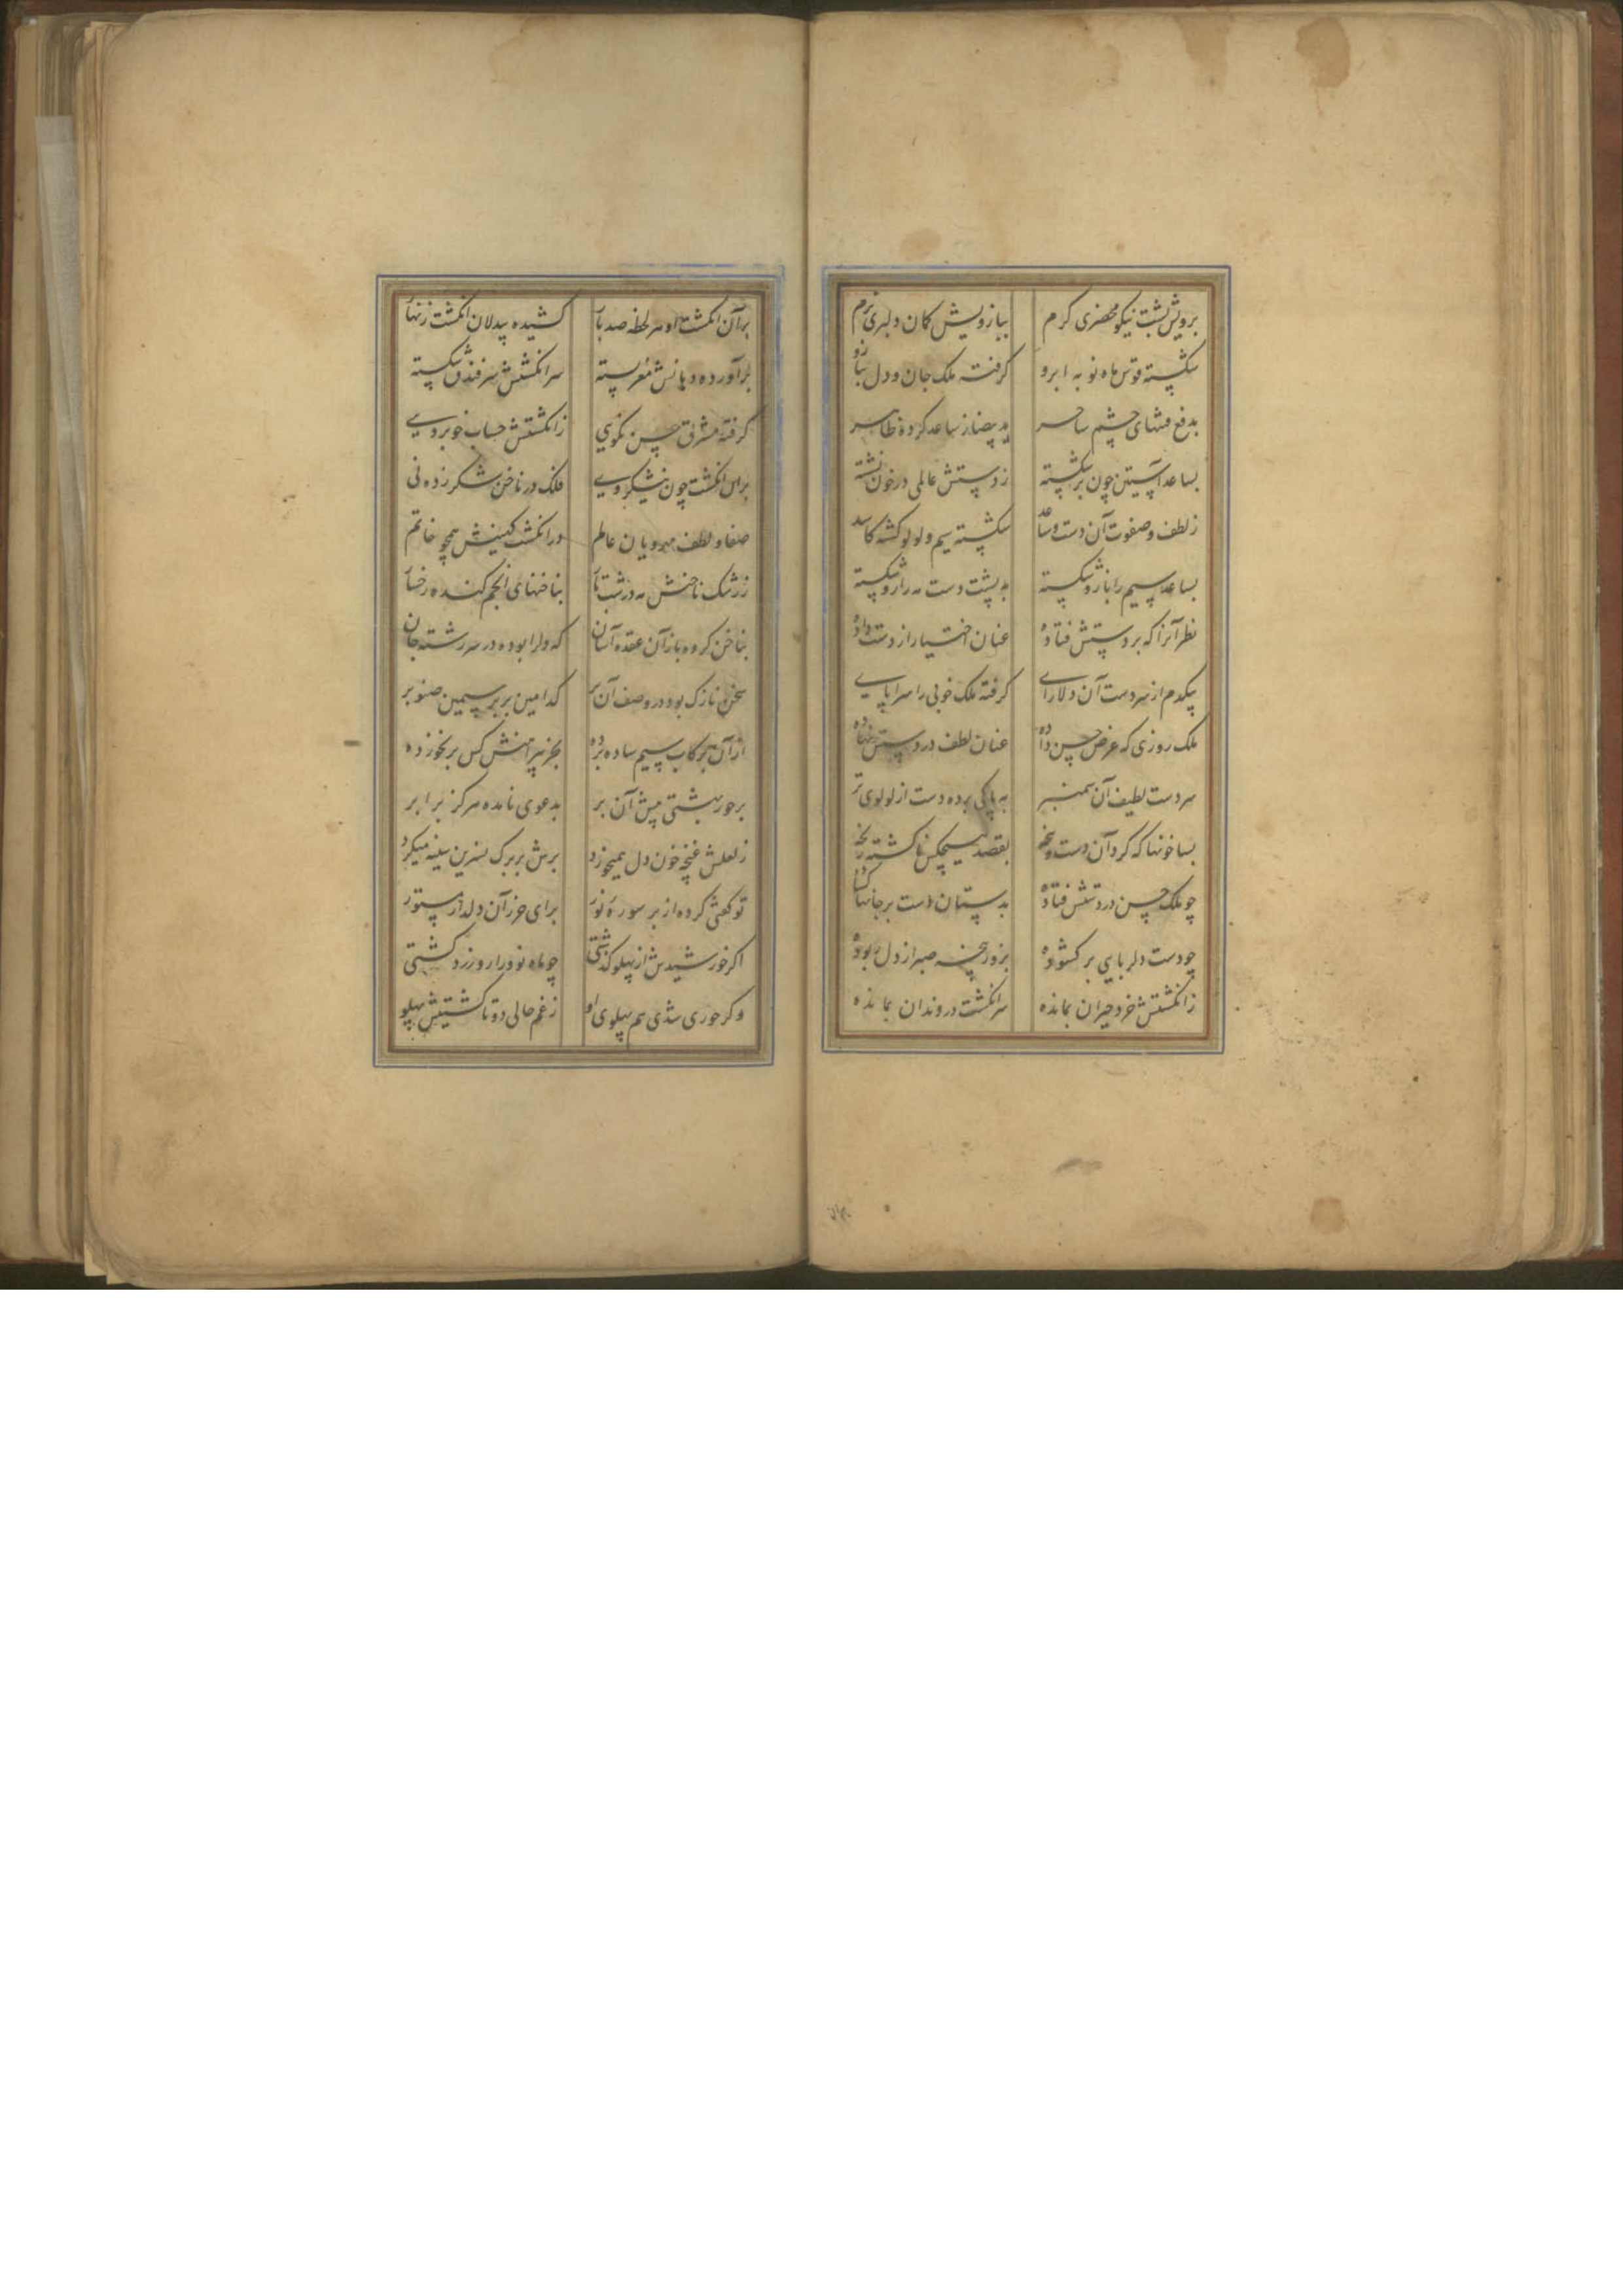 برویش پشت نیکو محضری گرم ببازویش کمان دلبری نرم
شکسته قوس ماه نو به ابرو گرفته ملک جان و دل ببازو
بدفع فتنهای چشم ساحر ید بیضا ز ساعد کرده ظاهر
بساعد آستین چون برشکسته ز دستش عالمی در خون نشسته
ز لطف و صفوت آن دست و ساعد شکسته سیم و لولو گشته کاسد
بساعد سیم را بازو شکسته به پشت دست مه را رو شکسته
نظر آنرا که بر دستش فتاده عنان اختیار از دست داده
بیکدم از سر دست آن دلارای گرفته ملک خوبی را سراپای
ملک روزی که عرض حسن داده عنان لطف در دستش نهاده
سر دست لطیف آن سمنبر به پاکی برده دست از لولوی تر
بسا خونها که کرد آن دست و پنجه بقصد هیچکس ناگشته رنجه
چو ملک حسن در دستش فتاده بدستان دست بر جانها گشاده
چو دست دلربایی بر گشوده بزور پنجه صبر از دل ربوده
ز انگشتش خرد حیران بمانده سر انگشت در دندان بمانده
بر آن انگشت او هر لحظه صد بار کشیده بیدلان انگشت زنهار
برآورده دهانش مغز پسته سر انگشتش سر فندق شکسته
گرفته مشرف حسن نکویی ز انگشتش حساب خوبرویی
بران انگشت چون نیشکر وی فلک در ناخن شکر زده نی
صفا و لطف مهرویان عالم در انگشت کهینش همچو خاتم
ز رشک ناخنش مه در شب تار بناخنهای انجم کنده رخسار
بناخن کرده باز آن عقده آسان که دلرا بوده در سررشته جان
سخن نازک بود در وصف آن بر کدامین بر بر سیمین صنوبر
از آن بر کاب سیم ساده برده بجز پیراهنش کس بر نخورده
بر حور بهشتی پیش آن بر بدعوی نامده هرگز برابر
ز لعلش غنچه خون دل همیخورد برش بر برگ نسرین سینه میکرد
تو گفتی کرده از بر سوره نور برای حرز آن دلدار مستور
اگر خورشیدش از پهلو گذشتی چو ماه نو ورا رو زرد گشتی
وگر حوری شدی هم پهلوی او ز غم حالی دوتا گشتیش پهلو